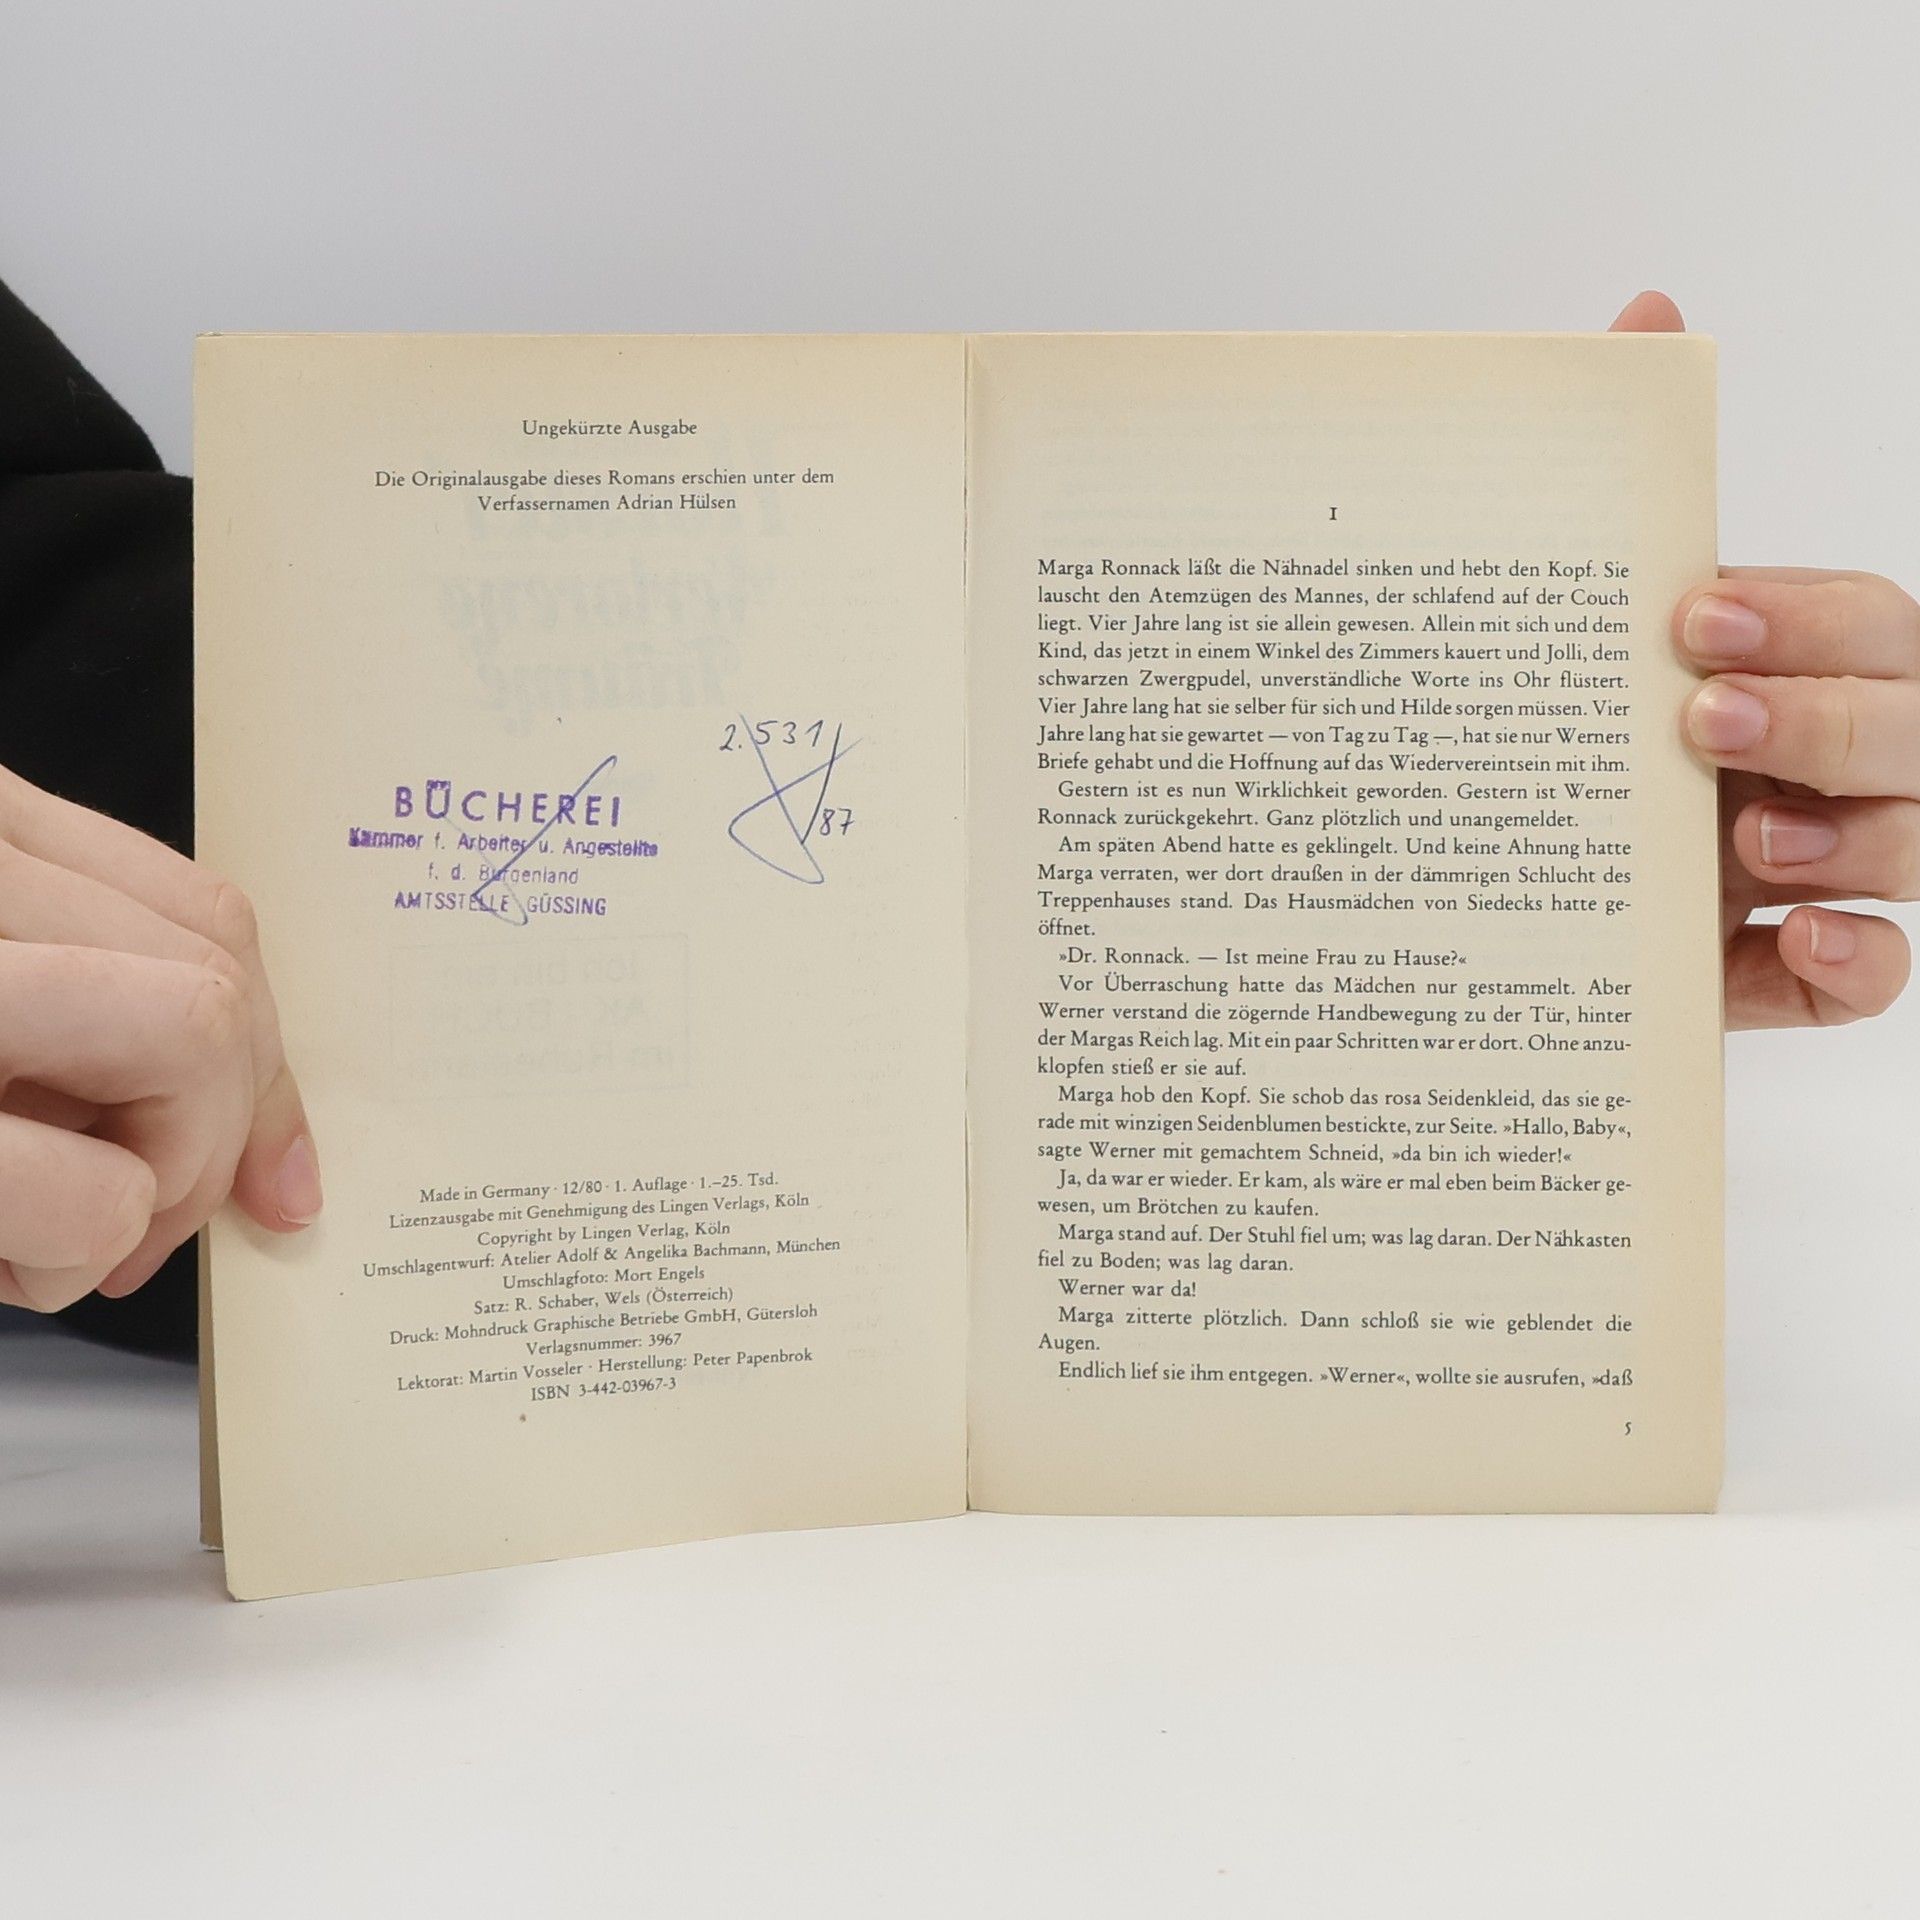 Ungekürzte Ausgabe
Die Originalausgabe dieses Romans erschien unter dem
Verfassernamen Adrian Hülsen
2.531/
87
BÜCHEREI
Kammer f. Arbeiter u. Angestellte
f. d. Burgenland
AMTSSTELLE GÜSSING
Made in Germany · 12/80 · 1. Auflage · 1.–25. Tsd.
Lizenzausgabe mit Genehmigung des Lingen Verlags, Köln
Copyright by Lingen Verlag, Köln
Umschlagentwurf: Atelier Adolf & Angelika Bachmann, München
Umschlagfoto: Mort Engels
Satz: R. Schaber, Wels (Österreich)
Druck: Mohndruck Graphische Betriebe GmbH, Gütersloh
Verlagsnummer: 3967
Lektorat: Martin Vosseler · Herstellung: Peter Papenbrok
ISBN 3-442-03967-3
I
Marga Ronnack läßt die Nähnadel sinken und hebt den Kopf. Sie
lauscht den Atemzügen des Mannes, der schlafend auf der Couch
liegt. Vier Jahre lang ist sie allein gewesen. Allein mit sich und dem
Kind, das jetzt in einem Winkel des Zimmers kauert und Jolli, dem
schwarzen Zwergpudel, unverständliche Worte ins Ohr flüstert.
Vier Jahre lang hat sie selber für sich und Hilde sorgen müssen. Vier
Jahre lang hat sie gewartet — von Tag zu Tag —, hat sie nur Werners
Briefe gehabt und die Hoffnung auf das Wiedervereintsein mit ihm.
Gestern ist es nun Wirklichkeit geworden. Gestern ist Werner
Ronnack zurückgekehrt. Ganz plötzlich und unangemeldet.
Am späten Abend hatte es geklingelt. Und keine Ahnung hatte
Marga verraten, wer dort draußen in der dämmrigen Schlucht des
Treppenhauses stand. Das Hausmädchen von Siedecks hatte ge-
öffnet.
»Dr. Ronnack. — Ist meine Frau zu Hause?«
Vor Überraschung hatte das Mädchen nur gestammelt. Aber
Werner verstand die zögernde Handbewegung zu der Tür, hinter
der Margas Reich lag. Mit ein paar Schritten war er dort. Ohne anzu-
klopfen stieß er sie auf.
Marga hob den Kopf. Sie schob das rosa Seidenkleid, das sie ge-
rade mit winzigen Seidenblumen bestickte, zur Seite. »Hallo, Baby«,
sagte Werner mit gemachtem Schneid, »da bin ich wieder!«
Ja, da war er wieder. Er kam, als wäre er mal eben beim Bäcker ge-
wesen, um Brötchen zu kaufen.
Marga stand auf. Der Stuhl fiel um; was lag daran. Der Nähkasten
fiel zu Boden; was lag daran.
Werner war da!
Marga zitterte plötzlich. Dann schloß sie wie geblendet die
Augen.
Endlich lief sie ihm entgegen. »Werner«, wollte sie ausrufen, »daß
5